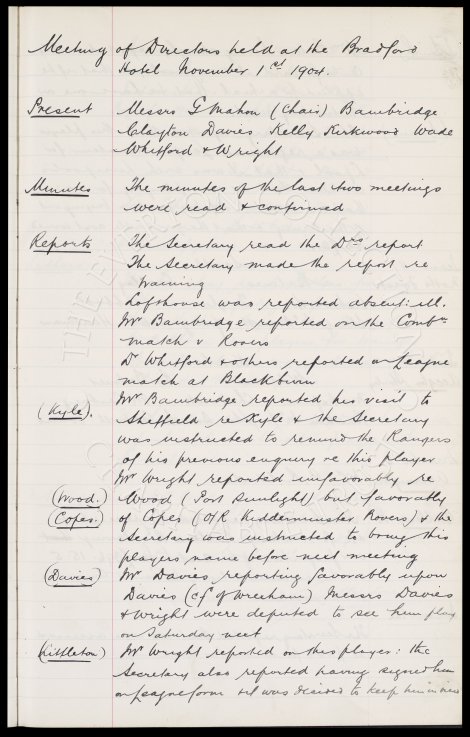 Meeting of Directors held at the Bradford
Hotel November 1st 1904.
Present Messrs G Mahon (Chair) Bainbridge
Clayton Davies Kelly Kirkwood Wade
Whitford & Wright
Minutes The minutes of the last two meetings
were read & confirmed
Reports The Secretary read the Drs report
The Secretary made the report re
training
Lofthouse was reported absent: ill.
Mr Bainbridge reported on the Combn
match v Rovers
Dr Whitford & others reported on League
match at Blackburn
(Kyle). Mr Bainbridge reported his visit to
Sheffield re Kyle & the Secretary
was instructed to remind the Rangers
of his previous enquiry re this player
Mr Wright reported unfavorably re
(Wood.) Wood (Port Sunlight) but favorably
(Copes.) of Copes (O/R Kidderminster Rovers) & the
Secretary was instructed to bring this
players name before next meeting
(Davies) Mr Davies reporting favorably upon
Davies (cf of Wrexham) Messrs Davies
& Wright were deputed to see him play
on Saturday next
(Littleton) Mr Wright reported on this player: the
Secretary also reported having signed him
on League form & it was decided to keep him in